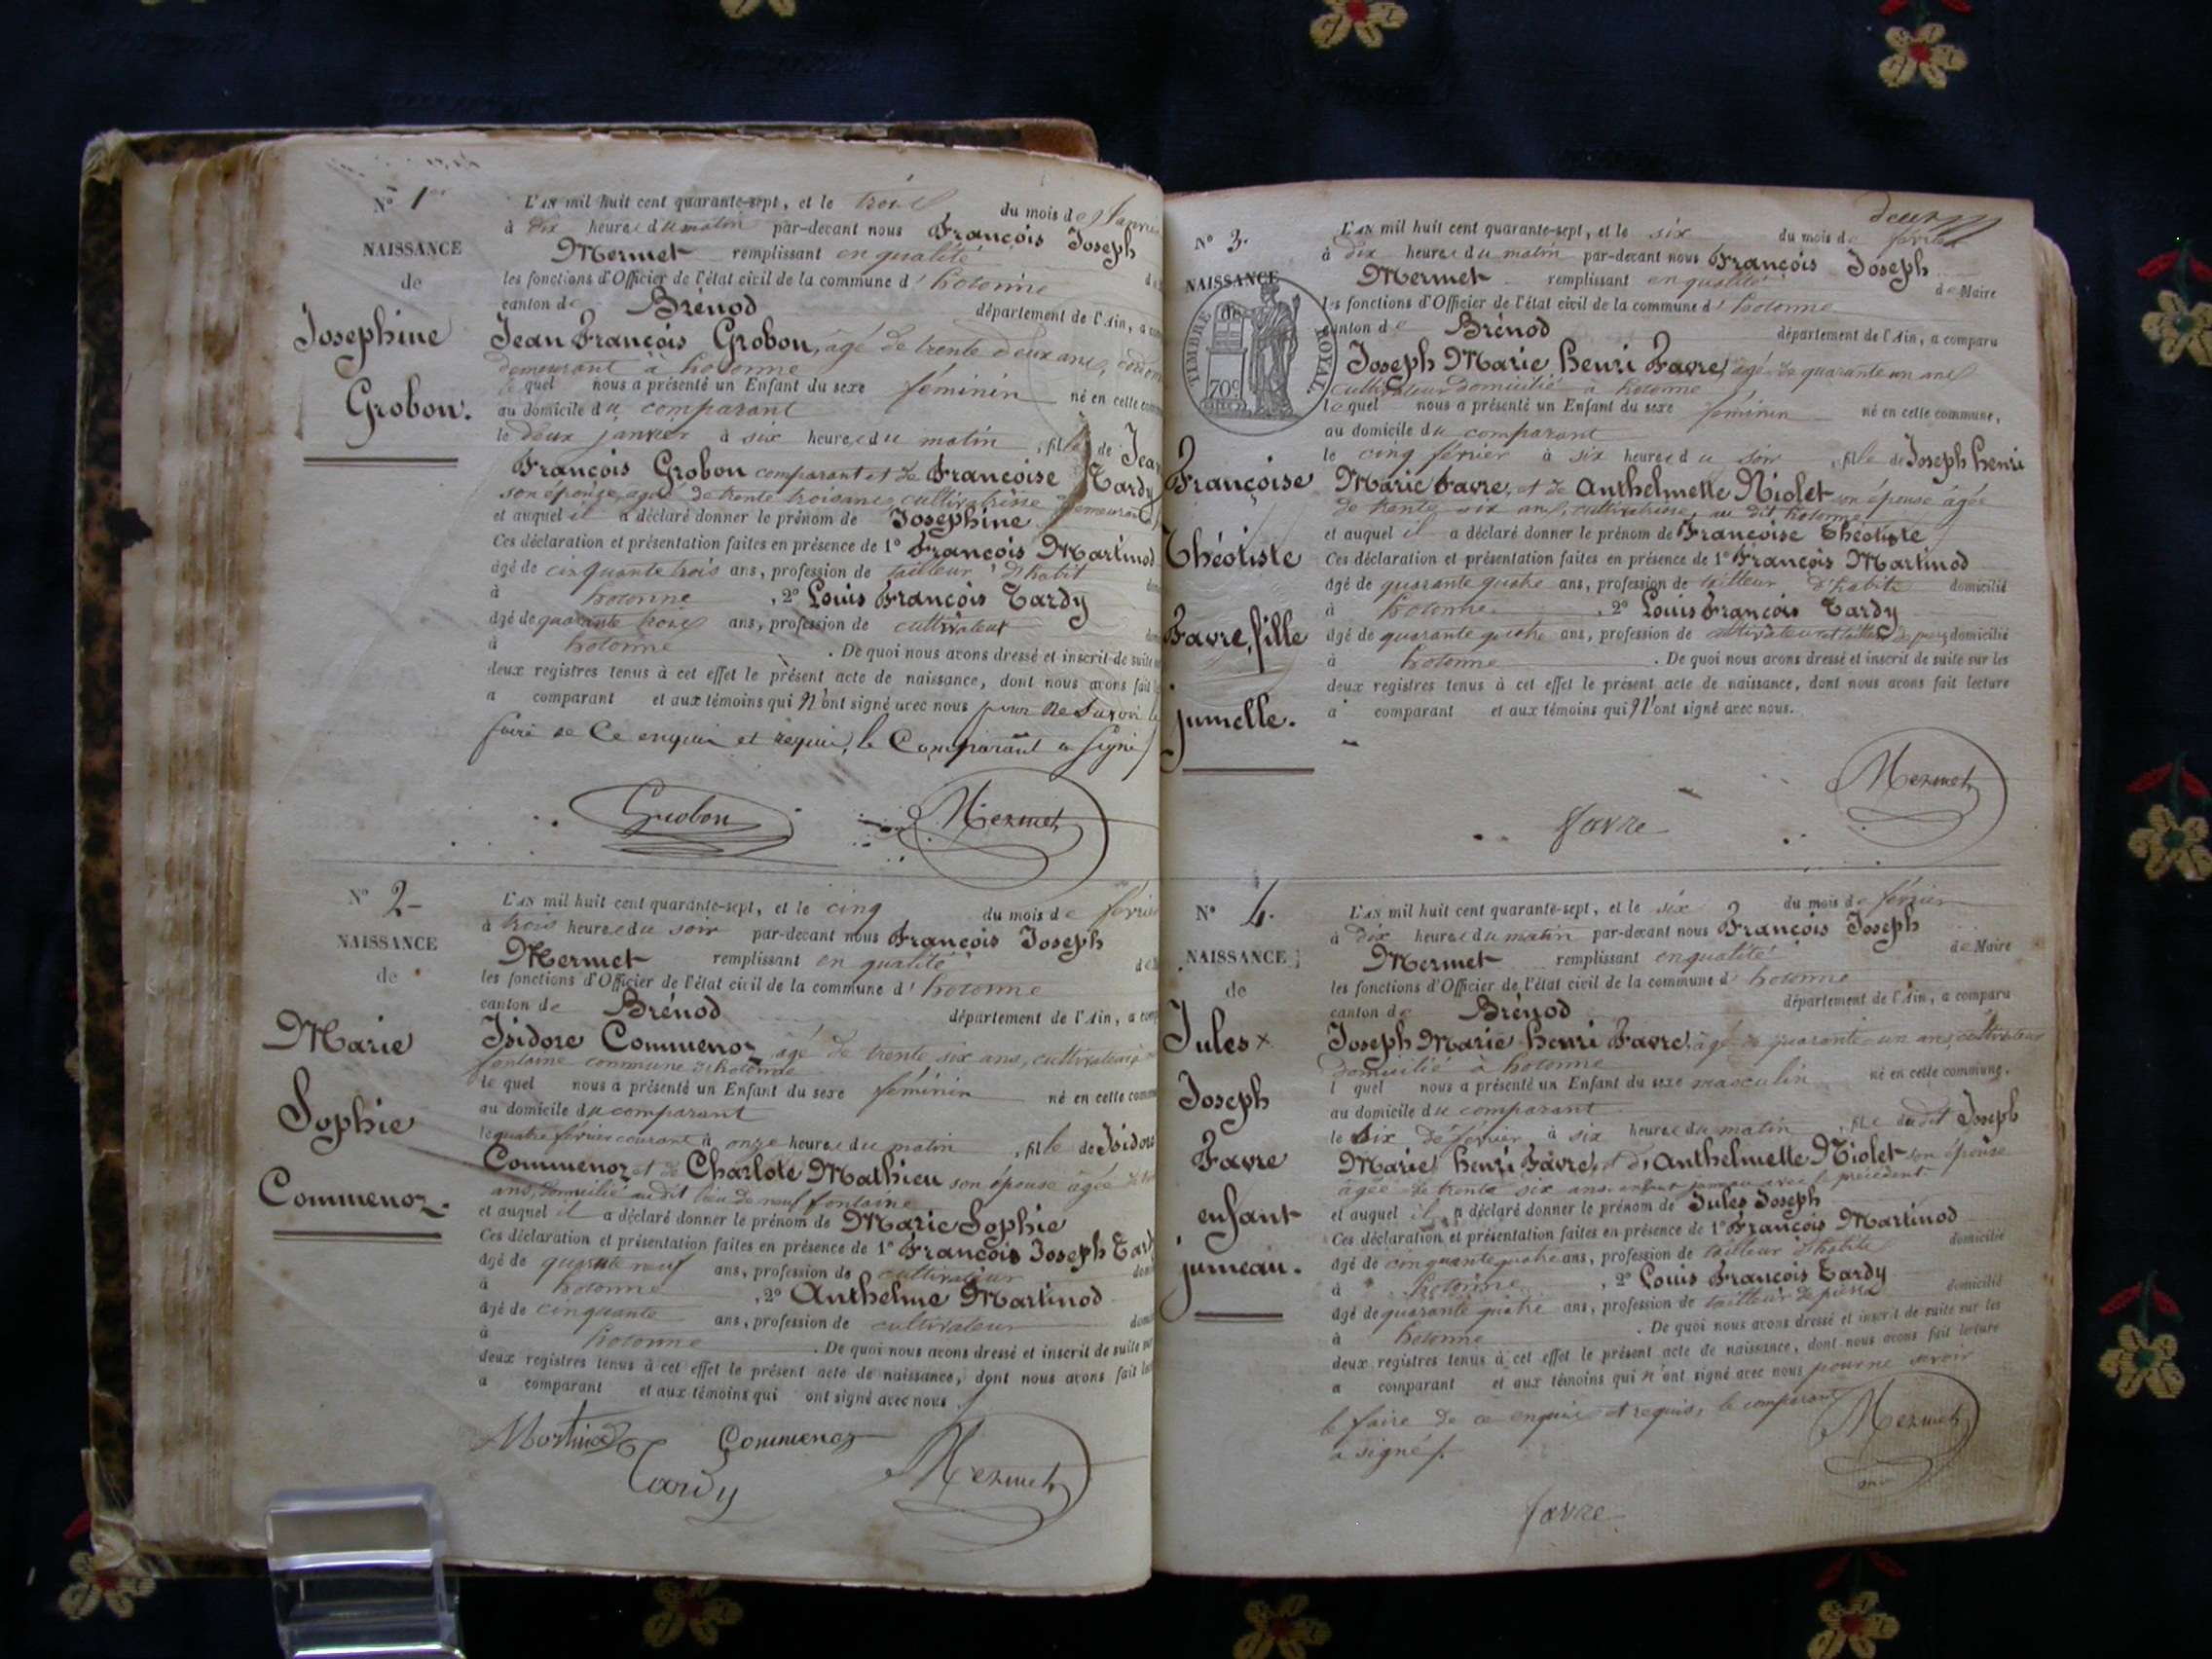 Nº 1er
NAISSANCE
de
Josephine
Grobon.
L'AN mil huit cent quarante-sept, et le trois du mois de Janvier
à dix heures du matin par-devant nous François Joseph
Mermet remplissant en qualité de
les fonctions d'Officier de l'état civil de la commune d'hotonne
canton de Brénod département de l'Ain, a
Jean François Grobon, âgé de trente deux ans,
demeurant à hotonne
le quel nous a présenté un Enfant du sexe féminin né en cette
au domicile du comparant
le deux janvier à six heures du matin, fille de Jean
François Grobon comparant et de Françoise Tardy
son épouse, agée de trente trois ans, cultivatrice
et auquel il a déclaré donner le prénom de Josephine
Ces déclaration et présentation faites en présence de 1º François Martinod
âgé de cinquante trois ans, profession de tailleur d'habit
à hotonne, 2º Louis François Tardy
âgé de quarante trois ans, profession de cultivateur
à hotonne. De quoi nous avons dressé et inscrit de suite
deux registres tenus à cet effet le présent acte de naissance, dont nous avons fait
a comparant et aux témoins qui n'ont signé avec nous pour ne savoir le
faire de Ce enquis et requis, le Comparant a signé
Grobon Mermet
Nº 2
NAISSANCE
de
Marie
Sophie
Commenoz.
L'AN mil huit cent quarante-sept, et le cinq du mois de février
à trois heures du soir par-devant nous François Joseph
Mermet remplissant en qualité
les fonctions d'Officier de l'état civil de la commune d'hotonne
canton de Brénod département de l'Ain, a
Isidore Commenoz agé de trente six ans, cultivateur à
fontaine commune d'hotonne
le quel nous a présenté un Enfant du sexe féminin né en cette
au domicile du comparant
le quatre février courant à onze heures du matin, fille de Isidore
Commenoz et de Charlote Mathieu son épouse âgée de
ans, domicilié au dit lieu de neuf fontaine
et auquel il a déclaré donner le prénom de Marie Sophie
Ces déclaration et présentation faites en présence de 1º François Joseph Tardy
âgé de quarante neuf ans, profession de cultivateur
à hotonne, 2º Anthelme Martinod
âgé de cinquante ans, profession de cultivateur
à hotonne. De quoi nous avons dressé et inscrit de suite
deux registres tenus à cet effet le présent acte de naissance, dont nous avons fait
a comparant et aux témoins qui ont signé avec nous
Martinod Commenoz
Tardy Mermet
deux
Nº 3.
NAISSANCE
de
TIMBRE ROYAL
70c
Françoise
Théotiste
Favre, fille
jumelle.
L'AN mil huit cent quarante-sept, et le six du mois de février
à dix heures du matin par-devant nous François Joseph
Mermet remplissant en qualité de Maire
les fonctions d'Officier de l'état civil de la commune d'hotonne
canton de Brénod département de l'Ain, a comparu
Joseph Marie henri Favre, agé de quarante un ans
cultivateur domicilié à hotonne
le quel nous a présenté un Enfant du sexe féminin né en cette commune,
au domicile du comparant
le cinq février à six heures du soir, fille de Joseph henri
Marie Favre, et de Anthelmette Niolet son épouse âgée
de trente six ans, cultivatrice, au dit hotonne
et auquel il a déclaré donner le prénom de Françoise Théotiste
Ces déclaration et présentation faites en présence de 1º François Martinod
âgé de quarante quatre ans, profession de tailleur d'habits domicilié
à hotonne, 2º Louis François Tardy
âgé de quarante quatre ans, profession de cultivateur et tailleur de domicilié
à hotonne. De quoi nous avons dressé et inscrit de suite sur les
deux registres tenus à cet effet le présent acte de naissance, dont nous avons fait lecture
a comparant et aux témoins qui n'ont signé avec nous.
Mermet
favre
Nº 4.
NAISSANCE
de
Jules
Joseph
Favre
enfant
jumeau.
L'AN mil huit cent quarante-sept, et le six du mois de février
à dix heures du matin par-devant nous François Joseph
Mermet remplissant en qualité de Maire
les fonctions d'Officier de l'état civil de la commune d'hotonne
canton de Brénod département de l'Ain, a comparu
Joseph Marie henri Favre, âgé de quarante un ans, cultivateur
domicilié à hotonne
l quel nous a présenté un Enfant du sexe masculin né en cette commune,
au domicile du comparant
le six de février à six heures du matin, fils du dit Joseph
Marie henri Favre, et d'Anthelmette Niolet son épouse
âgée de trente six ans. enfant jumeau avec le précédent
et auquel il a déclaré donner le prénom de Jules Joseph
Ces déclaration et présentation faites en présence de 1º François Martinod
âgé de cinquante quatre ans, profession de tailleur d'habits domicilié
à hotonne, 2º Louis François Tardy
âgé de quarante quatre ans, profession de tailleur de pierre domicilié
à hotonne. De quoi nous avons dressé et inscrit de suite sur les
deux registres tenus à cet effet le présent acte de naissance, dont nous avons fait lecture
a comparant et aux témoins qui n'ont signé avec nous pour ne savoir
le faire de ce enquis et requis, le comparant
a signé
Mermet
favre